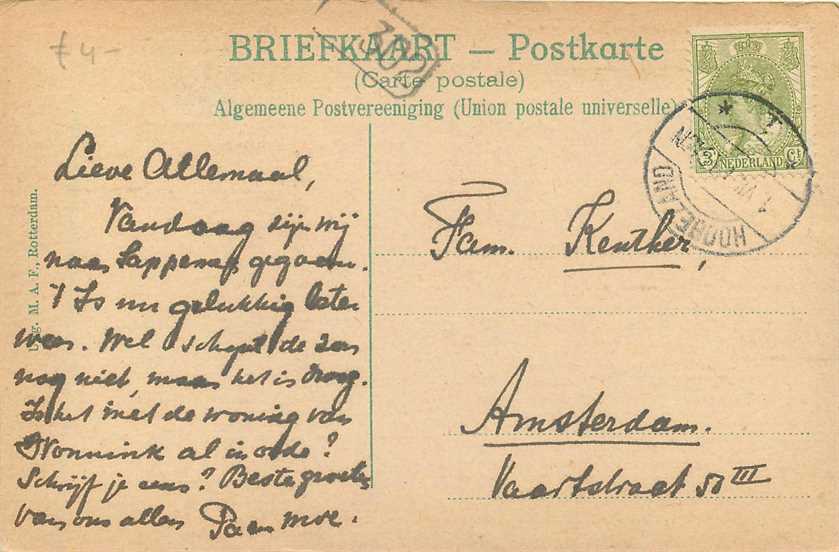 £ 4-
BRIEFKAART — Postkarte
(Carte postale)
Algemeene Postvereeniging (Union postale universelle)
3 Ct
NEDERLAND
Uitg. M. A. F., Rotterdam.
Lieve Allemaal,
Vandaag zijn wij
naar gegaan.
't Is nu gelukkig beter
weer. Wel schept de zon
nog niet, maar het is droog.
Is het met de woning van
Wonnink al in orde?
Schrijf je eens? Beste groeten
van ons allen Pa en moe.
Fam. Kenther,
Amsterdam.
Vaartstraat 50 III